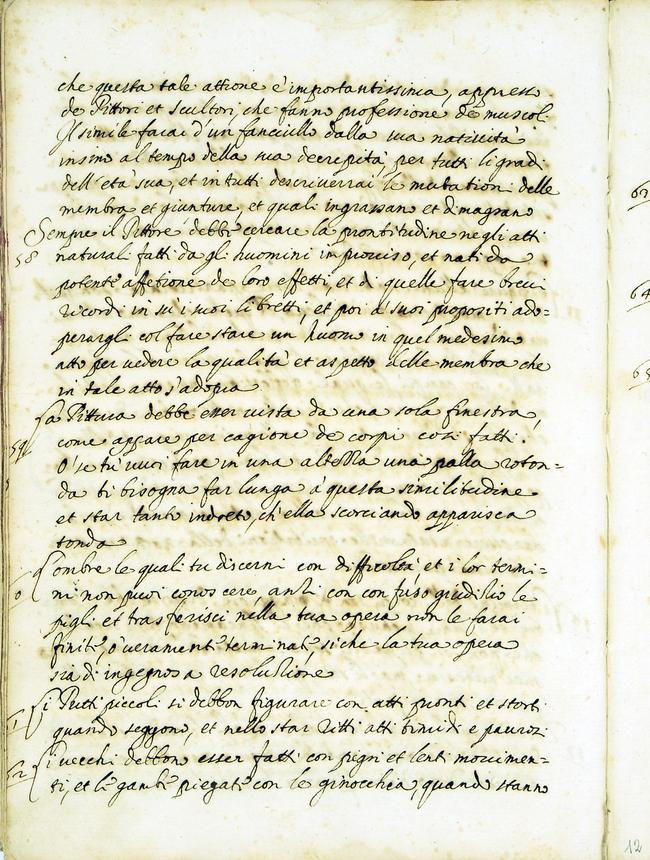 che questa tale attione è importantissima, appresso
de Pittori et scultori, che fanno professione de muscoli
Il simile farai d'un fanciullo dalla sua natività
insino al tempo della sua decrepità per tutti li gradi
dell'età sua, et in tutti descriverrai le mutationi delle
membra et giunture, et quali ingrassano et dimagrano
Sempre il Pittore debbe cercare la prontitudine negli atti
58
naturali fatti da gli huomini improviso, et nati da
potente affetione de loro effetti, et di quelle fare brevi
ricordi in su i suoi libretti, et poi à suoi propositi ado=
perargli col fare stare un huomo in quel medesimo
atto per vedere la qualità et aspetto delle membra che
in tale atto s'adopra
La Pittura debbe esser vista da una sola finestra,
59
come appare per cagione de corpi cosi fatti.
O' se tu vuoi fare in una altezza una palla roton=
da ti bisogna far lunga à questa similitudine
et star tanto indreto, ch'ella scorciando apparisca
tonda
L'ombre le quali tu discerni con difficoltà, et i lor termi=
ni non puoi conoscere, anzi con confuso giuditio le
pigli et trasferisci nella tua opera non le farai
finite, o' veramente terminate, siche la tua opera
sia d'ingegnosa resolutione
i Putti piccoli si debbon figurare con atti pronti et storti
quando seggono, et nello star ritti atti timidi e paurosi
i vecchi debbono esser fatti con pigri et lenti movimen=
62
ti, et le gambe piegate con le ginocchia, quando stanno
63
64
65
12